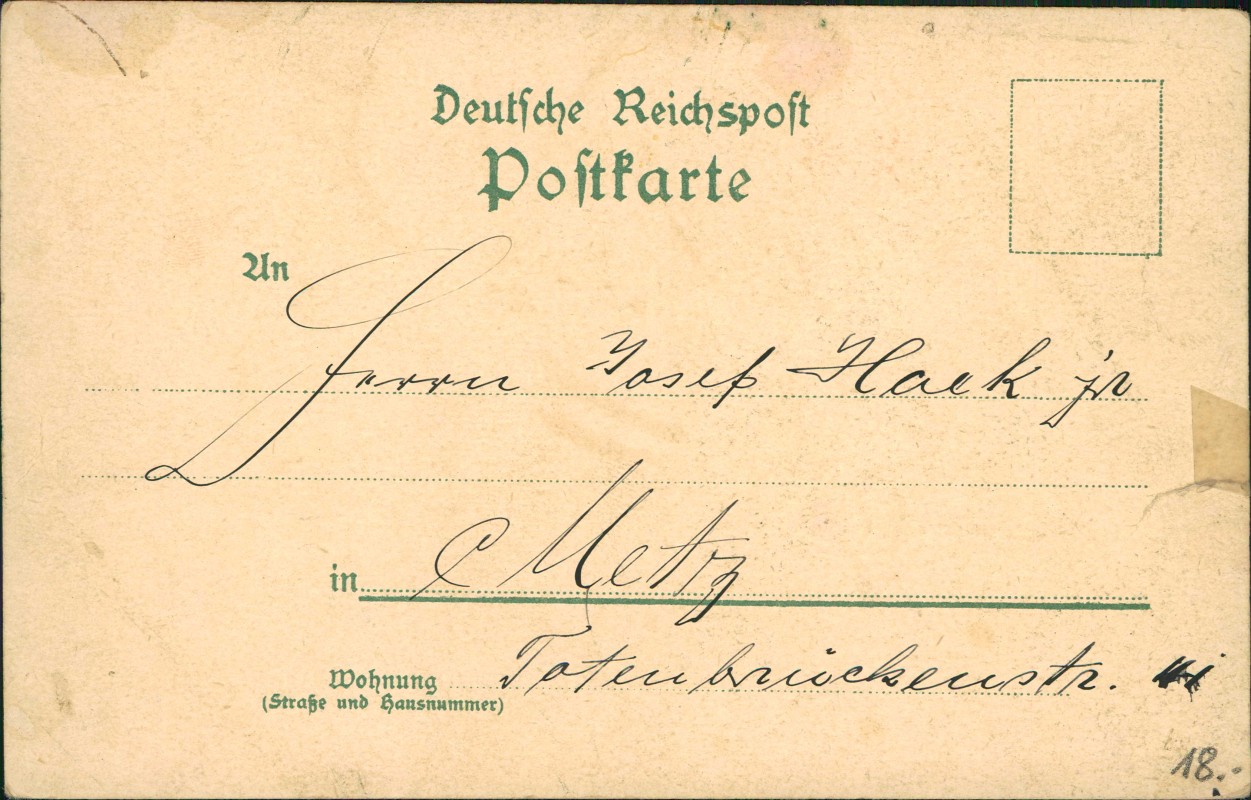 Deutsche Reichspost
Postkarte
An
Herrn Josef Hack jr
in Metz
Wohnung Totenbrückenstr.
(Straße und Hausnummer)
18.-